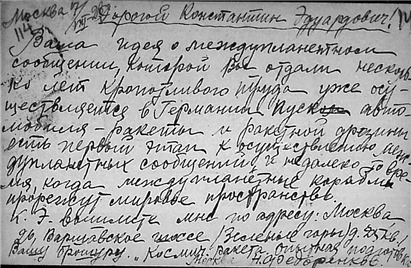 Москва Дорогой Константин Эдуардович!
Ваша идея о междупланетном
сообщении, которой Вы отдали несколь
ко лет кропотливого труда уже осу-
ществляется в Германии. Пуск авто
мобиля-ракеты и ракетной дрезины
есть первый этап к осуществлению меж
дупланетных сообщений и недалеко то вре
мя, когда междупланетные корабли
прорежут мировое пространство.
К. Э. вышлите мне по адресу: Москва
26, Варшавское шоссе /Зеленые горы/ д.
Вашу брошюру „Космич. ракета. опытная подготовка"